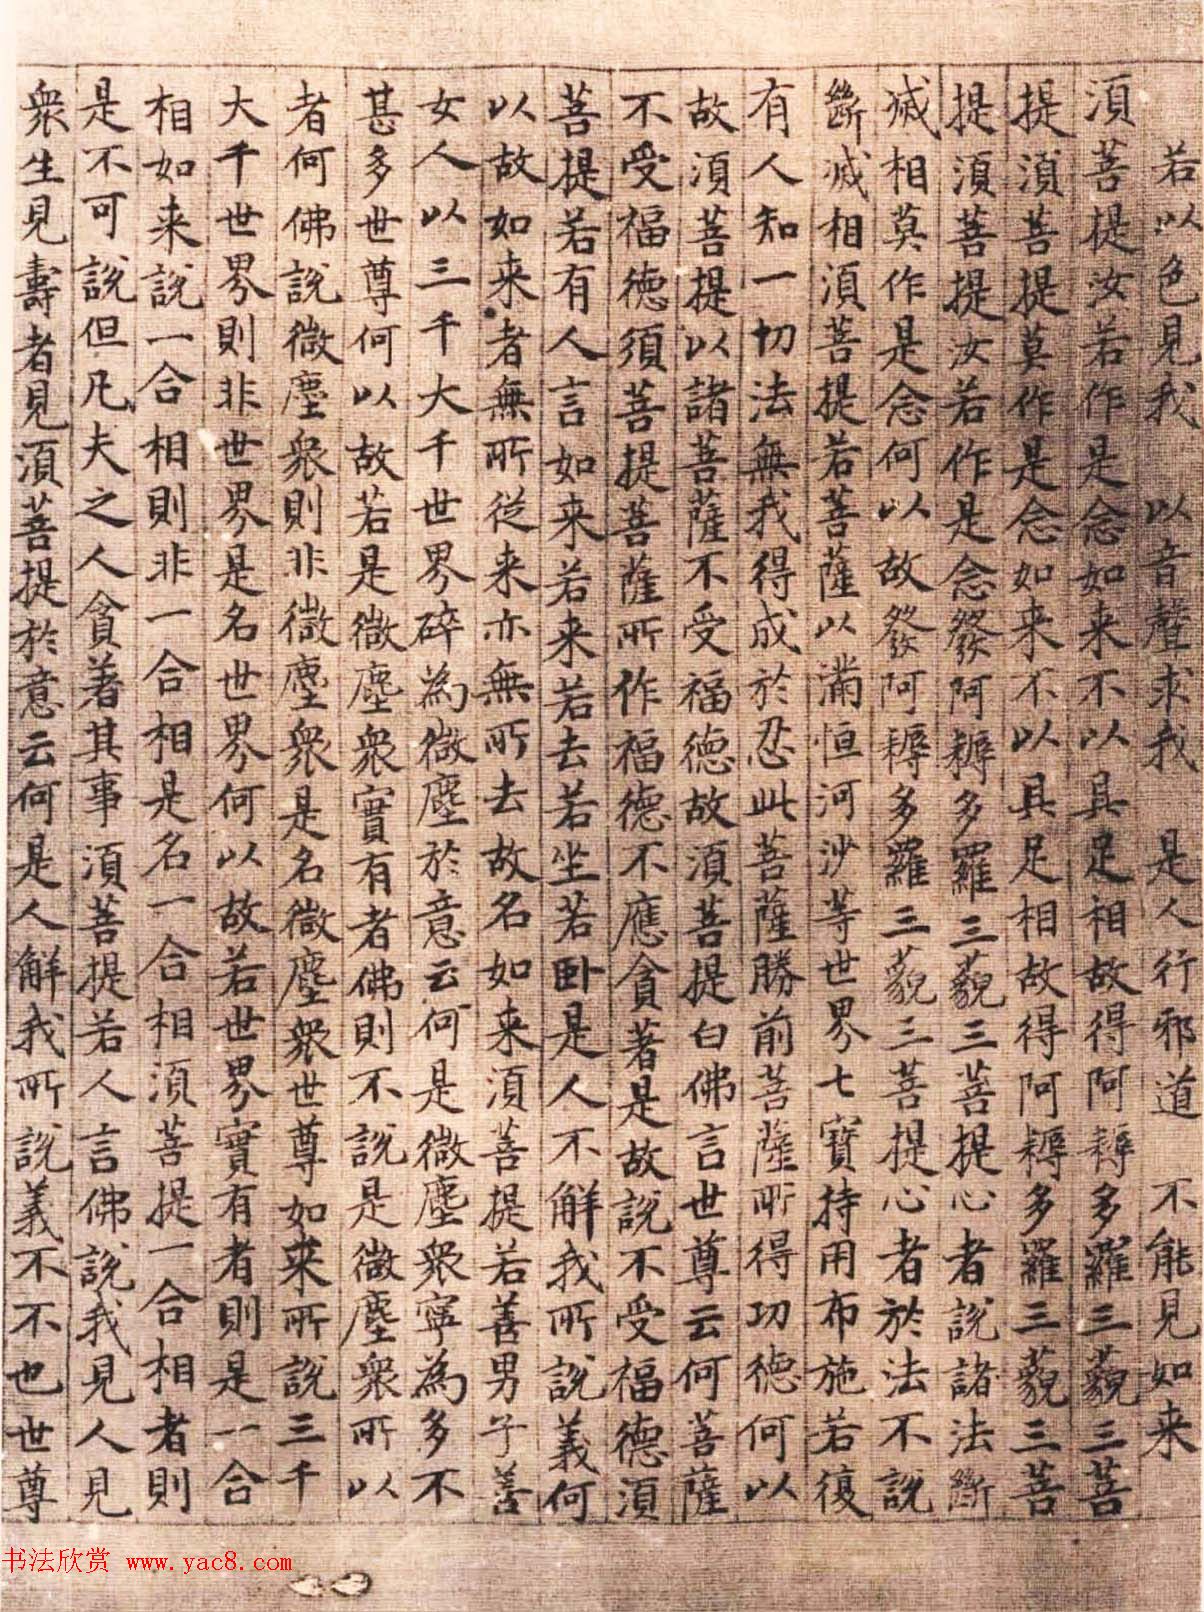 若以色見我 以音聲求我 是人行邪道 不能見如来
湏菩提汝若作是念如来不以具足相故得阿耨多羅三藐三菩
提湏菩提莫作是念如来不以具足相故得阿耨多羅三藐三菩
提湏菩提汝若作是念發阿耨多羅三藐三菩提心者說諸法斷
滅相莫作是念何以故發阿耨多羅三藐三菩提心者於法不說
斷滅相湏菩提若菩薩以滿恒河沙等世界七寶持用布施若復
有人知一切法無我得成於忍此菩薩勝前菩薩所得功德何以
故湏菩提以諸菩薩不受福德故湏菩提白佛言世尊云何菩薩
不受福德須菩提菩薩所作福德不應貪著是故說不受福德湏
菩提若有人言如来若来若去若坐若卧是人不解我所說義何
以故如来者無所從来亦無所去故名如来湏菩提若善男子善
女人以三千大千世界碎為微塵於意云何是微塵衆寧為多不
甚多世尊何以故若是微塵衆實有者佛則不說是微塵衆所以
者何佛說微塵衆則非微塵衆是名微塵衆世尊如来所說三千
大千世界則非世界是名世界何以故若世界實有者則是一合
相如来說一合相則非一合相是名一合相湏菩提一合相者則
是不可說但凡夫之人貪著其事湏菩提若人言佛說我見人見
衆生見壽者見湏菩提於意云何是人解我所說義不不也世尊
书法欣赏 www.yac8.com